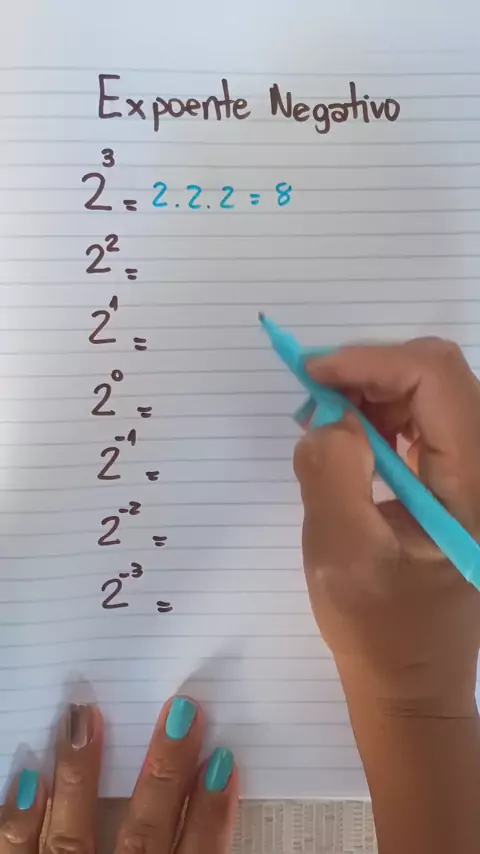 Expoente Negativo
2³ = 2.2.2 = 8
2² =
2¹ =
2⁰ =
2⁻¹ =
2⁻² =
2⁻³ =